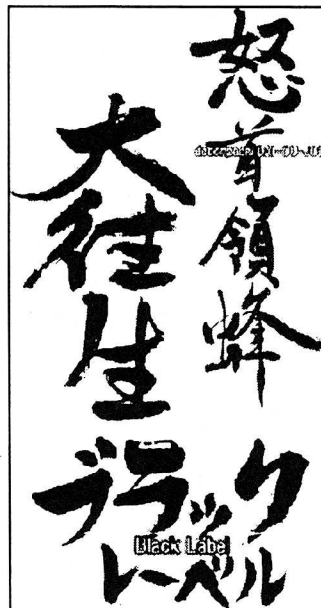 怒首領蜂
大往生
ブラック
Black Label
レーベル